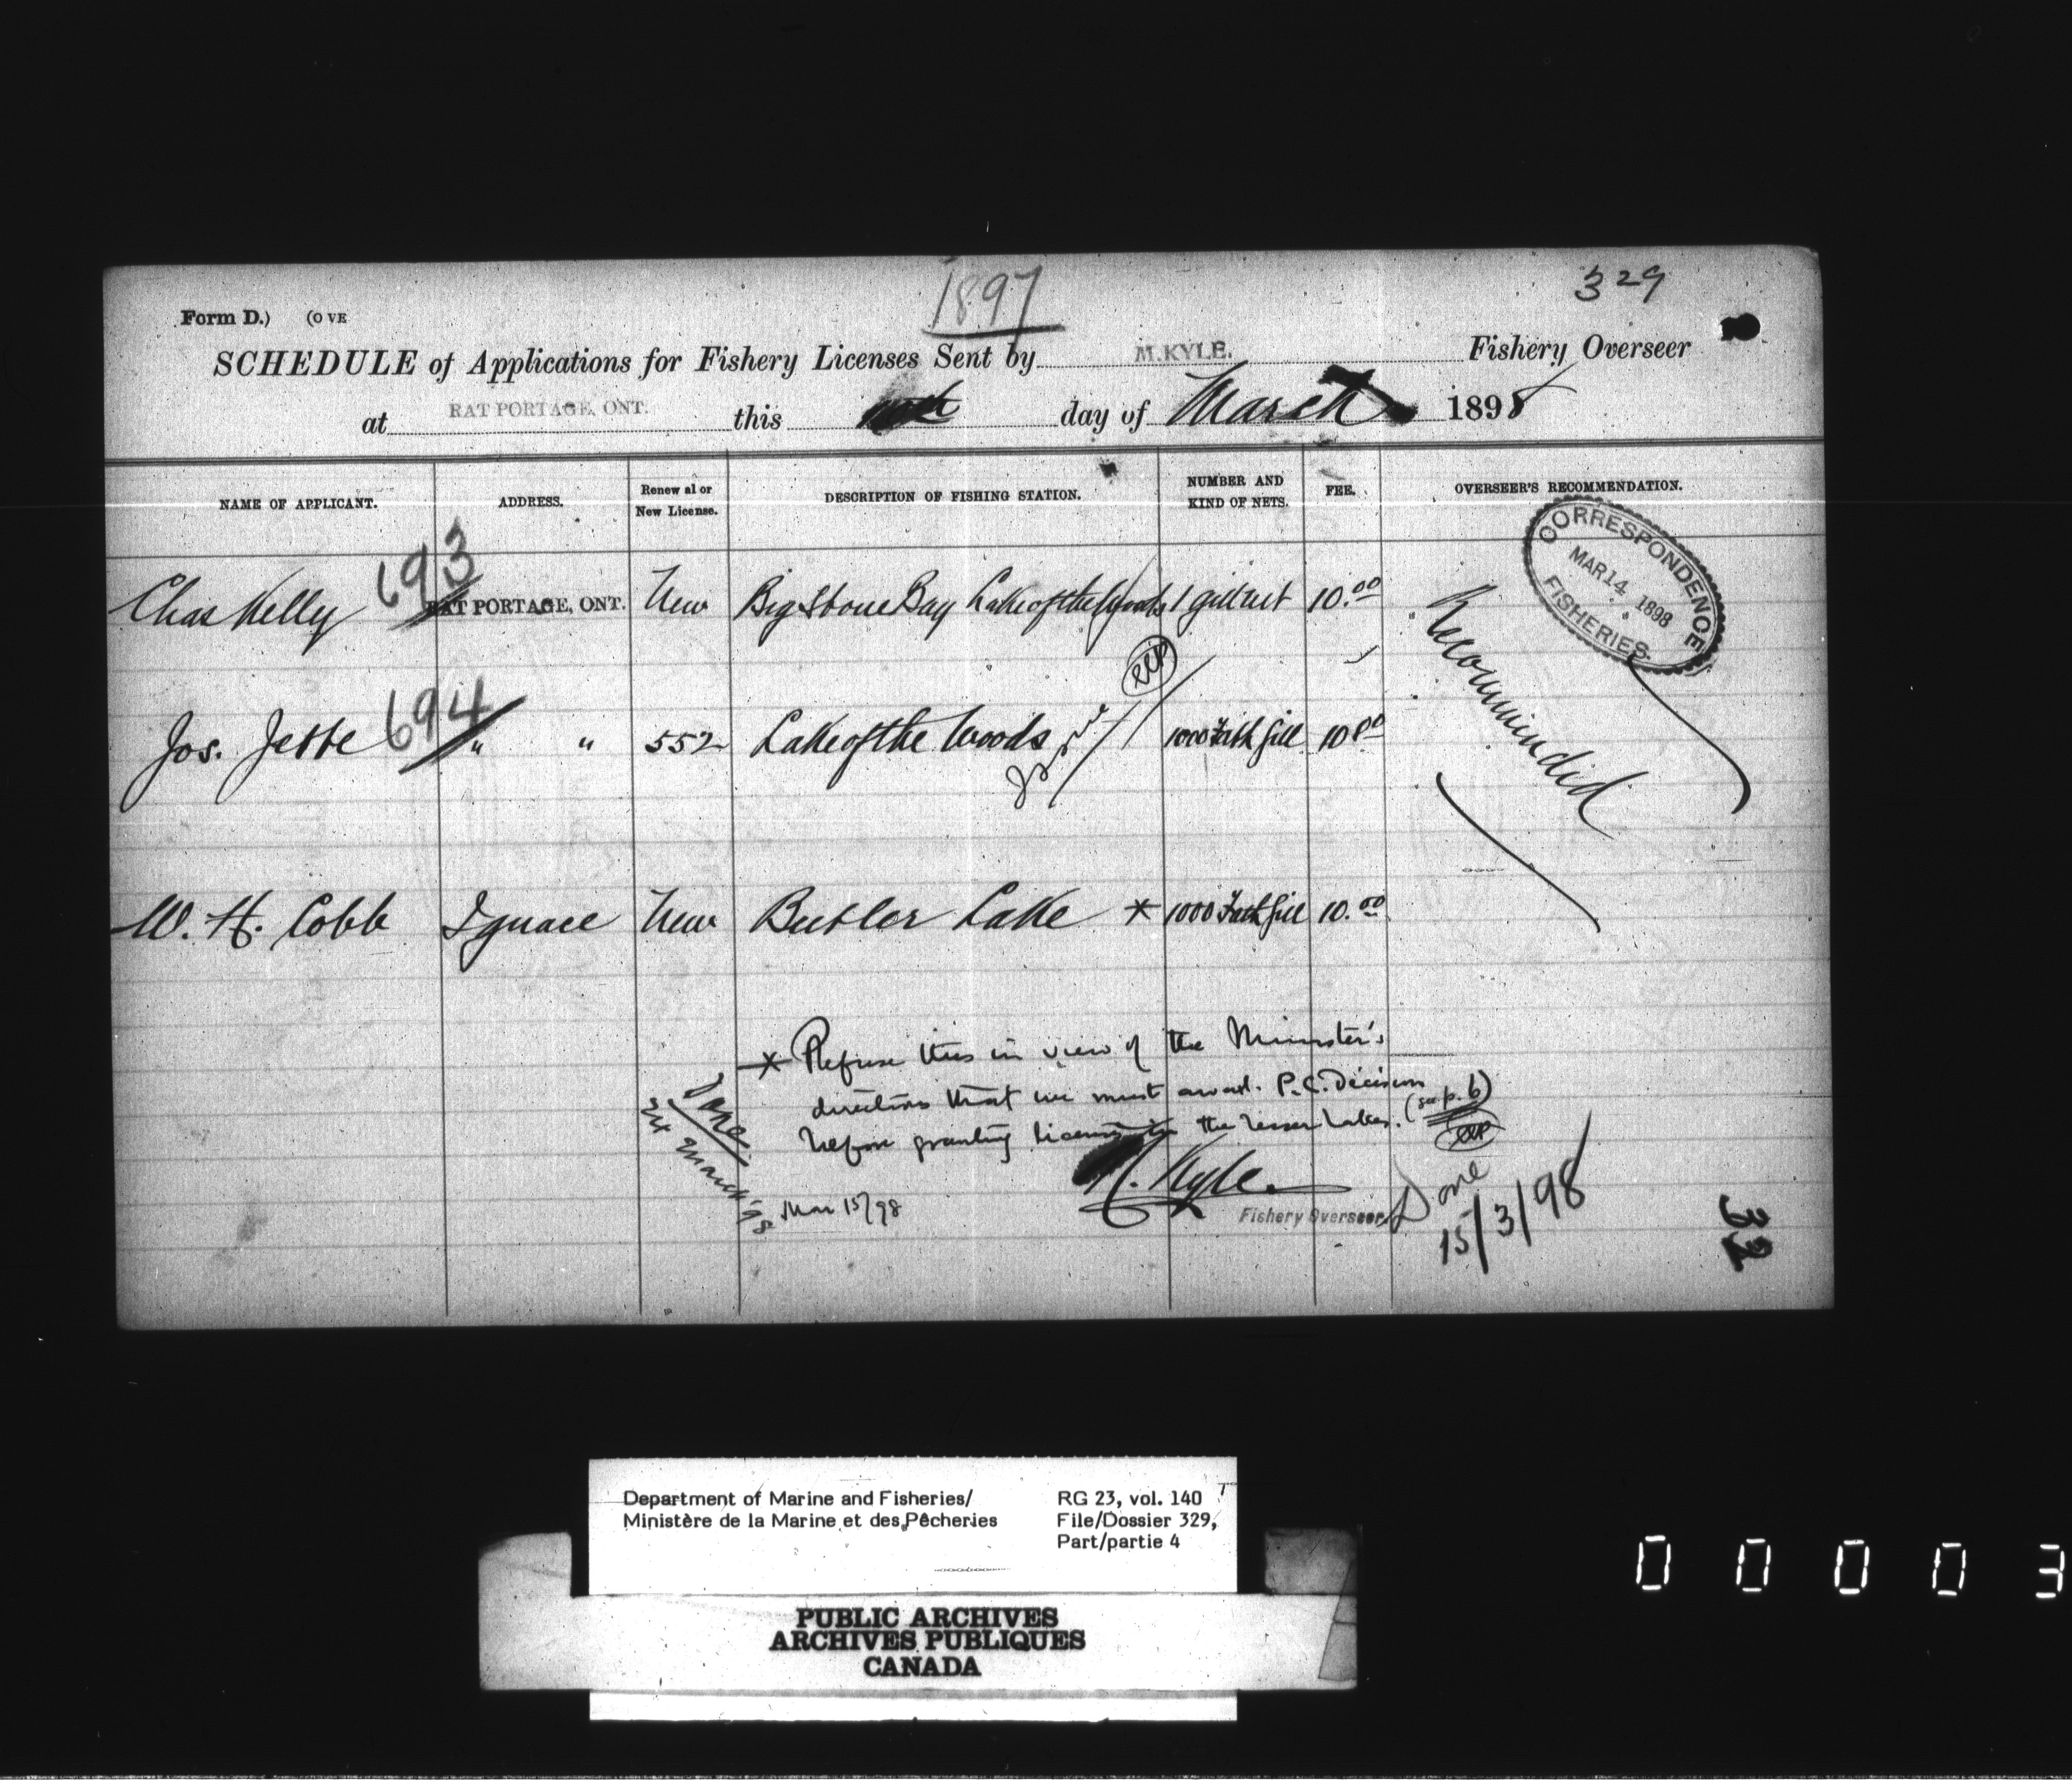 1897
329
Form D.) (OVE
SCHEDULE of Applications for Fishery Licenses Sent by M. KYLE. Fishery Overseer
at RAT PORTAGE, ONT. this day of March 1898
NAME OF APPLICANT. ADDRESS. Renewal or New License. DESCRIPTION OF FISHING STATION. NUMBER AND KIND OF NETS. FEE. OVERSEER'S RECOMMENDATION.
CORRESPONDENCE
MAR 14 1898
FISHERIES.
Chas Kelly 693 RAT PORTAGE, ONT. New Big Stone Bay Lake of the Woods 1 gill net 10.00
Recommended
Jos. Jette 694 " " 552 Lake of the Woods 1000 Fath gill 10.00
W. H. Cobb Ignace New Butler Lake * 1000 Fath gill 10.00
* Refuse this in view of the Minister's
direction that we must await P.C. Decision
before granting licenses in the lesser Lakes. (see p. 6)
Done
March '98
Mar 15/98
M. Kyle
Fishery Overseer
Done
15/3/98
32
Department of Marine and Fisheries/
Ministère de la Marine et des Pêcheries
RG 23, vol. 140
File/Dossier 329,
Part/partie 4
PUBLIC ARCHIVES
ARCHIVES PUBLIQUES
CANADA
0 0 0 0 3